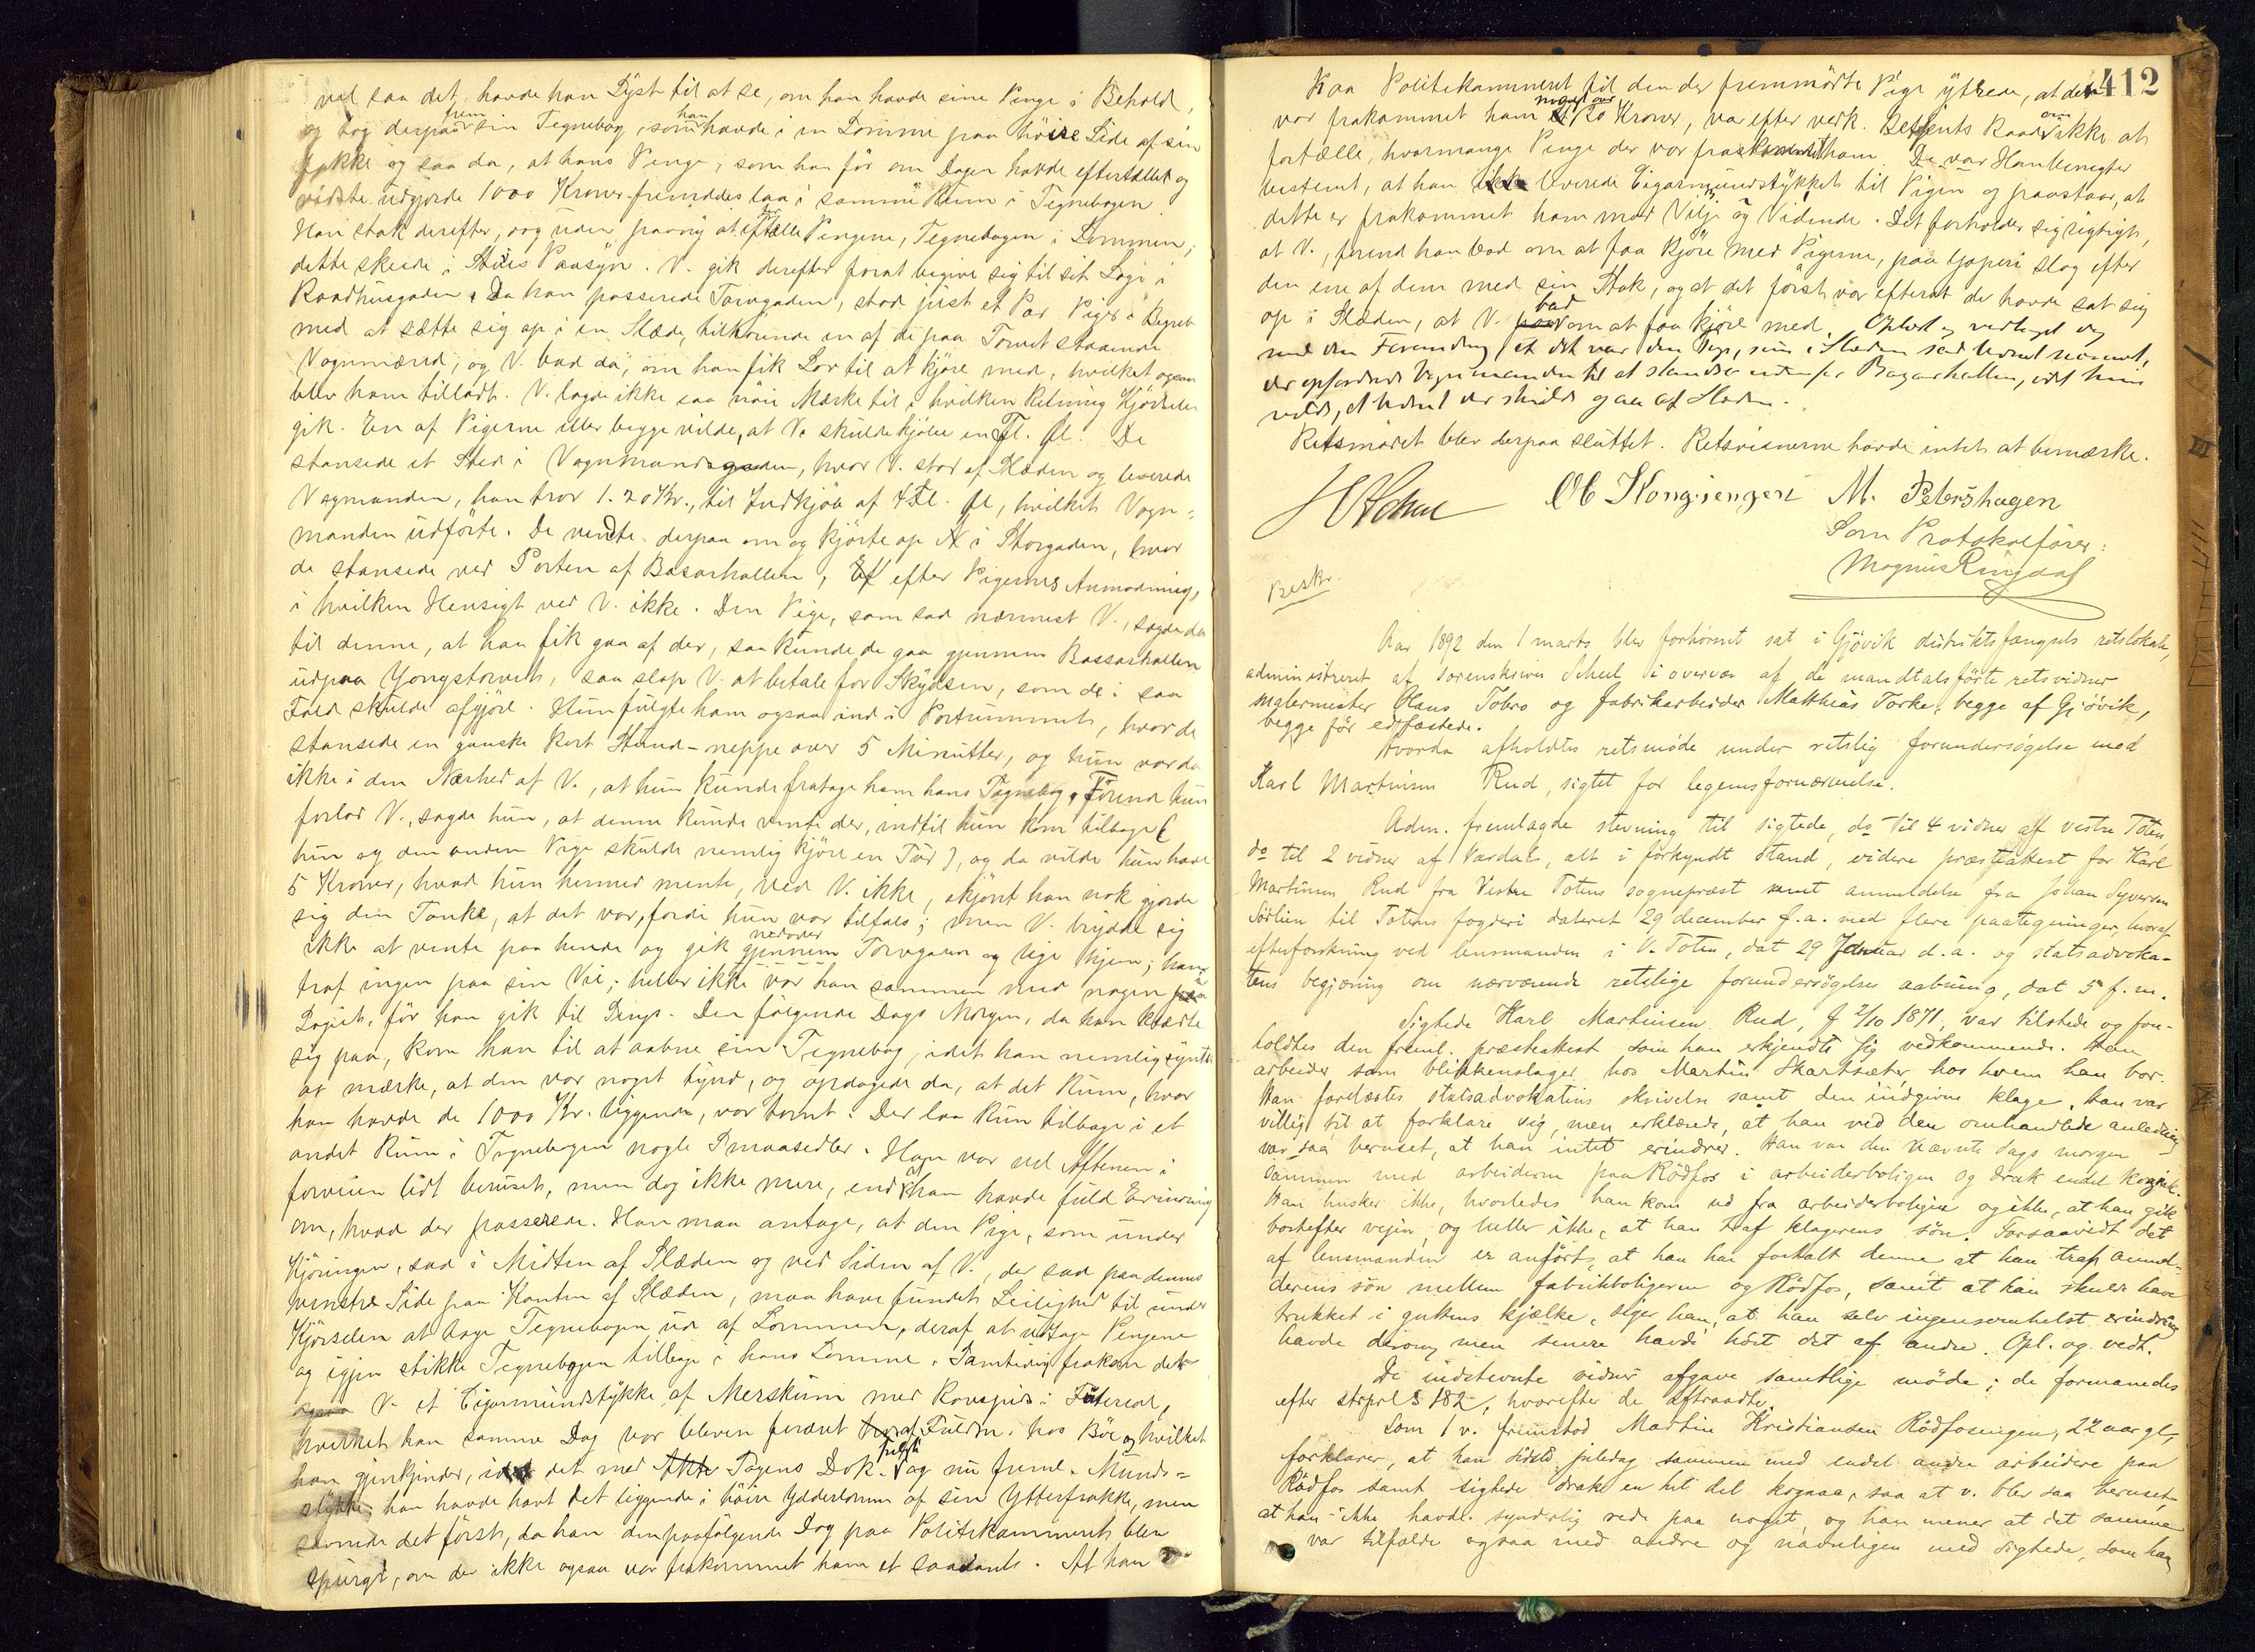 vel saa det, havde han Lyst til at se, om han havde sine Penge i Behold,
og tog derpaa frem sin Tegnebog, som han havde i en Lomme paa høire Side af sin
Frakke og saa da, at hans Penge, som han før om Dagen havde eftertællet og
vidste udgjorde 1000 Kroner fremdeles laa i samme Rum i Tegnebogen.
Han stak derefter, dog uden paany at eftertælle Pengene, Tegnebogen i Lommen;
dette skede i Paasyn. V. gik derefter forat begive sig til sit Logi i
Raadhusgaden. Da han passerede Torvgaden, stod just et Par Piger i Begreb
med at sætte sig op i en Slæde, tilhørende en af de paa Torvet staaende
Vognmænd, og V. bad da, om han fik Lov til at kjøre med, hvilket ogsaa
blev ham tilladt. V. lagde ikke saa nøie Mærke til i hvilken Retning Kjørselen
gik. En af Pigerne eller begge vilde, at V. skulde kjøbe en Fl. Øl. De
stansede et Sted i Vognmandsgaden, hvor V. stod af Slæden og leverede
Vogmanden, han tror 1.20 Kr., til Indkjøb af 4 Fl. Øl, hvilket Vogn-
manden udførte. De vendte derpaa om og kjørte op i Storgaden, hvor
de stansede ved Porten af Basarhallen, efter Pigernes Anmodning,
i hvilken Hensigt ved V. ikke. Den Pige, som sad nærmest V., sagde da
til denne, at han fik gaa af der, saa kunde de gaa gjennem Bassarhallen
udpaa Yongstorvet, saa slap V. at betale for Skydsen, som de i saa
Fald skulde afgjøre. Hun fulgte ham ogsaa ind i Portrummet, hvor de
stansede en ganske kort Stund - neppe over 5 Minutter, og hun var da
ikke i den Nærhed af V., at hun kunde fratage ham hans Tegnebog. Førend hun
forlod V., sagde hun, at denne kunde vente der, indtil hun kom tilbage (
hun og den anden Pige skulde nemlig kjøre en Tur), og da vilde hun have
5 Kroner, hvad hun hermed mente, ved V. ikke, skjønt han nok gjorde
sig den Tanke, at det var, fordi hun var tilfals; men V. brydde sig
ikke at vente paa hende og gik nedover gjennem Torvgaden og lige hjem; han
traf ingen paa sin Vei; heller ikke var han sammen med nogen
Logiet, før han gik til Sengs. Den følgende Dags Morgen, da han klædte
sig paa, kom han til at aabne sin Tegnebog, idet han nemlig syntes
at mærke, at den var noget tynd, og opdagede da, at det Rum, hvor
han havde de 1000 Kr. liggende, var tomt. Der laa kun tilbage i et
andet Rum i Tegnebogen nogle Smaasedler. Han var ved Aftenen i
forveien lidt beruset, men dog ikke mere, end at han havde fuld Erindring
om, hvad der passerede. Han maa antage, at den Pige, som under
Kjøringen, sad i Midten af Slæden og ved Siden af V., der sad paa dennes
venstre Side paa Kanten af Slæden, maa have fundet Leilighed til under
Kjørselen at tage Tegnebogen ud af Lommen, deraf at udtage Pengene
og igjen stikke Tegnebogen tilbage i hans Lomme. Samtidig frakom det
V. et Cigarmundstykke af Merskum med Ravspids i Futeral,
hvilket han samme Dag var bleven foræret hos Bøe og hvilket
han gjenkjender, det med Sagens Dok. fulgte og nu freml. Munds-
stykke; han havde havt det liggende i høire Yderlomme af sin Ytterfrakke, men
savnede det først, da han den paafølgende Dag paa Politikammeret blev
spurgt, om der ikke ogsaa var frakommet ham et saadant. At han
412
Paa Politikammeret til den der fremmødte Pige ytrede, at der
var frakommet ham noget over Kroner, var efter verk. Betjents Raad om ikke at
fortælle, hvormange Penge der var frakommet ham. De var Han benegter
bestemt, at han leverede Cigarmundstykket til Pigen og paastaar, at
dette er frakommet ham mod Vilje og Vidende. Det forholder sig rigtigt,
at V., førend han bad om at faa kjøre med Pigerne, paa Gaperi slog efter
den ene af dem med sin Stok, og at det først var efterat de havde sat sig
op i Slæden, at V. bad om at faa kjøre med. Oplæst og vedtaget
med den Forandring, at det var den Pige, som i Slæden sad nærmest,
der opfordrede Vognmanden til at standse udenfor Bazarhallen, idet hun
vilde, at skulde gaa af Slæden.
Retsmødet blev derpaa sluttet. Retsvidnerne havde intet at bemærke.
Ob Kongsengen M. Petershagen
Som Protokolfører:
Magnus Ringdal
Beskr.
Aar 1892 den 1 marts blev forhørsret sat i Gjøvik distriktsfængsels retslokale,
administreret af sorenskriver Scheel i overvær af de mandtalsførte retsvidner
malermester Olaus Tobro og fabrikarbeider Matthias Torke, begge af Gjøvik,
begge før edfæstede.
Hvorda afholdtes retsmøde under retslig forundersøgelse mod
Karl Martinsen Rud, sigtet for legemsfornærmelse.
Adm. fremlagde stevning til sigtede, do til 4 vidner af vestre Toten,
do til 2 vidner af Vardal, alt i forkyndt stand, videre præsteattest for Karl
Martinsen Rud fra Vestre Totens sogneprest samt anmeldelse fra Johan Syversen
Sørlien til Totens fogderi dateret 29 december f.a. med flere paategninger, hvoraf
efterforskning ved lensmanden i V. Toten, dat 29 Januar d.a. og statsadvoka-
tens begjæring om nærværende retslige forundersøgelses aabning, dat 5 f.m.
Sigtede Karl Martinsen Rud, f 2/10 1871, var tilstede og fore-
holdtes den freml. præsteattest som han erkjendte sig vedkommende. Han
arbeider som blikkenslager hos Martin Skartsæter, hos hvem han bor.
Han forelæstes statsadvokatens skrivelse samt den indgivne klage. Han var
villig til at forklare sig, men erklærede, at han ved den omhandlede anledning
var saa beruset, at han intet erindrer. Han var den nævnte dags morgen
sammen med arbeiderne paa Rødfos i arbeiderboligen og drak endel konjak.
Han husker ikke, hvorledes han kom ud fra arbeiderboligen og ikke, at han gik
bortefter vejen, og heller ikke, at han traf klagerens søn. Forsaavidt det
af lensmanden er anført, at han har fortalt denne at han traf anmel-
derens søn mellem fabrikboligerne og Rødfos, samt at han skulde have
trukket i guttens kjælke, siger han, at han selv ingensomhelst erindring
havde derom, men senere havde hørt det af andre. Opl. og vedt.
De indstevnte vidner afgave samtlige møde; de formanedes
efter strprl § 182, hvorefter de aftraadte.
Som 1 v. fremstod Martin Kristiansen Rødfosengen, 22 aar gl,
forklarer, at han sidste juledag sammen med endel andre arbeidere paa
Rødfos samt sigtede drak en hel del kognac, saa at v. blev saa beruset,
at han ikke havde synderlig rede paa noget, og han mener at det samme
var tilfælde ogsaa med andre og navnligen med sigtede, som han